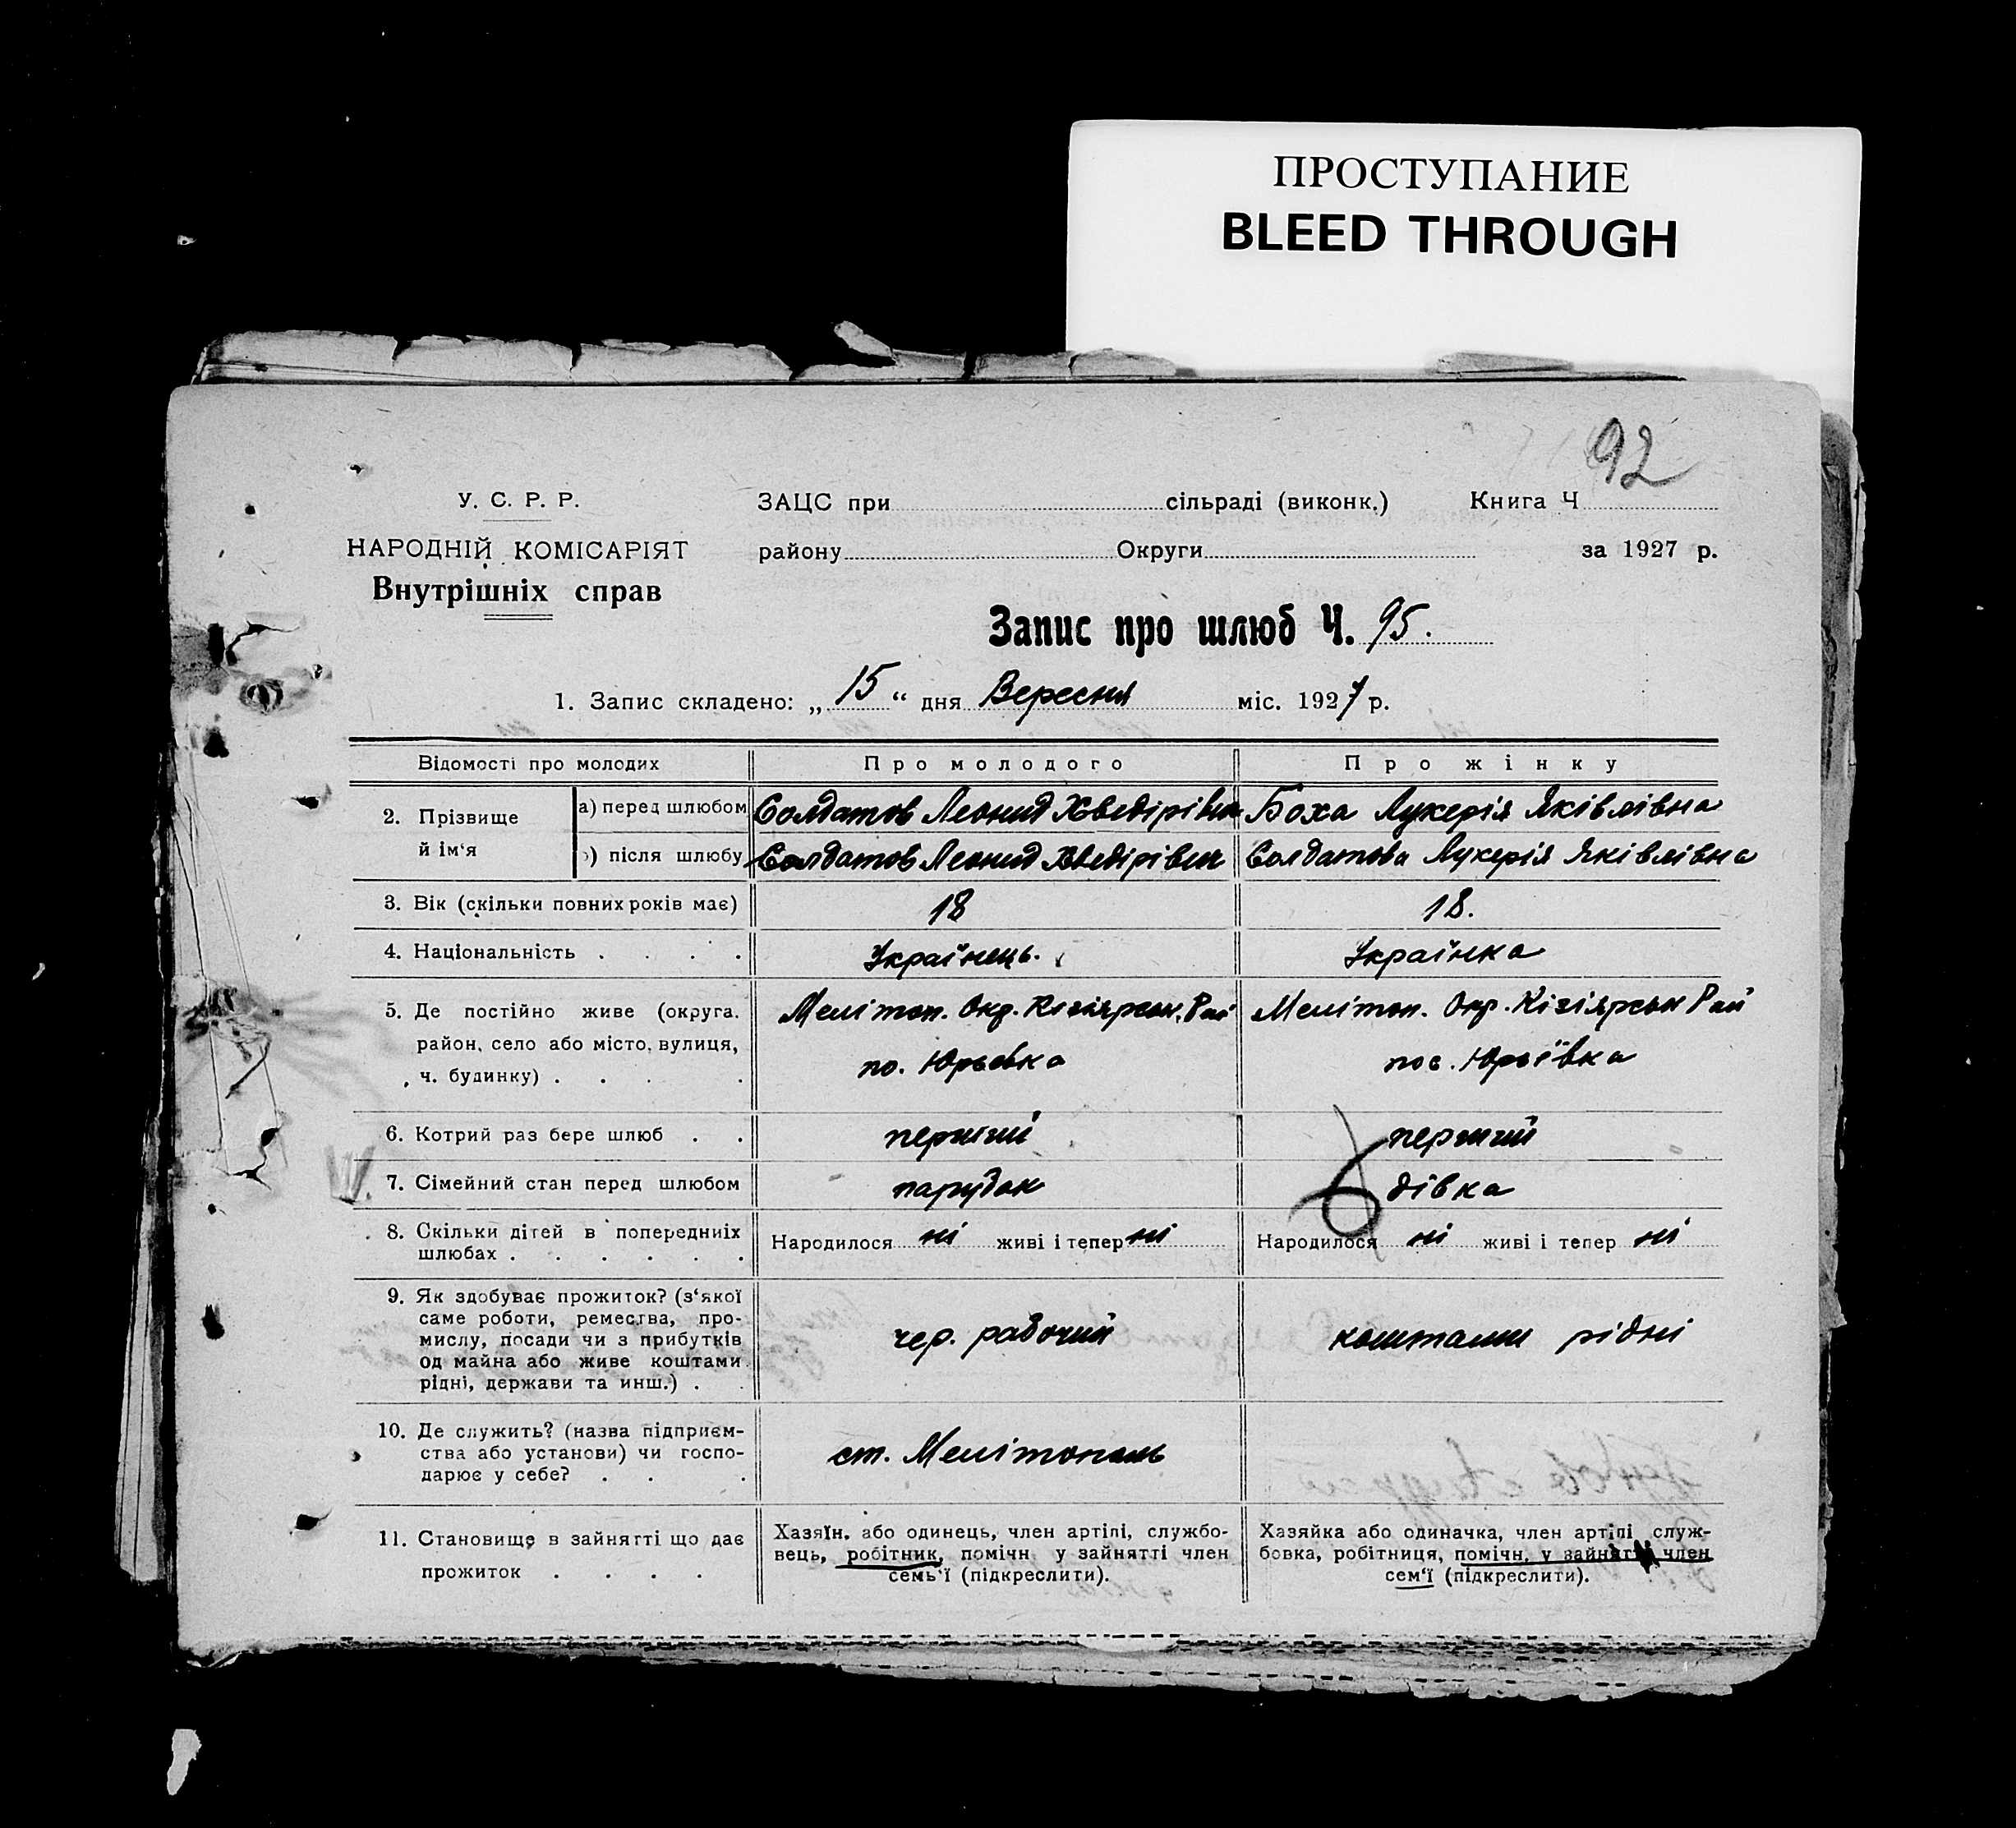 ПРОСТУПАНИЕ
BLEED THROUGH
92
У. С. Р. Р.
НАРОДНІЙ КОМІСАРІЯТ
Внутрішніх справ
ЗАЦС при сільраді (виконк.) Книга Ч
району Округи за 1927 р.
Запис про шлюб Ч. 95.
1. Запис складено: „15“ дня Вересня міс. 1927 р.
Відомості про молодих Про молодого Про жінку
2. Прізвище й ім‘я
а) перед шлюбом Солдатов Леонид Хведірівич Боха Лукерія Яківлівна
) після шлюбу Солдатов Леонид Хведірівич Солдатова Лукерія Яківлівна
3. Вік (скільки повних років має) 18 18.
4. Національність . . . . Українець. Українка
5. Де постійно живе (округа.
район, село або місто, вулиця,
ч. будинку) . . . .
Мелітоп. Окр. Кізіярськ. Рай
по. Юрьевка
Мелітоп. Окр. Кізіярськ Рай
пос. Юрьївка
6. Котрий раз бере шлюб . . перший перший
7. Сімейний стан перед шлюбом парубок дівка
8. Скільки дітей в попередніх
шлюбах . . . . . .
Народилося ні живі і тепер ні
Народилося ні живі і тепер ні
9. Як здобуває прожиток? (з‘якої
саме роботи, ремества, про-
мислу, посади чи з прибутків
од майна або живе коштами
рідні, держави та инш.) . .
чер. рабочий
коштами рідні
10. Де служить? (назва підприєм-
ства або установи) чи госпо-
дарює у себе? . . .
ст. Мелітополь
11. Становище в зайнятті що дає
прожиток . . . .
Хазяїн. або одинець, член артілі, службо-
вець, робітник, помічн у зайнятті член
семь‘ї (підкреслити).
Хазяйка або одиначка, член артілі служ-
бовка, робітниця, помічн. у зайнятті член
сем‘ї (підкреслити).